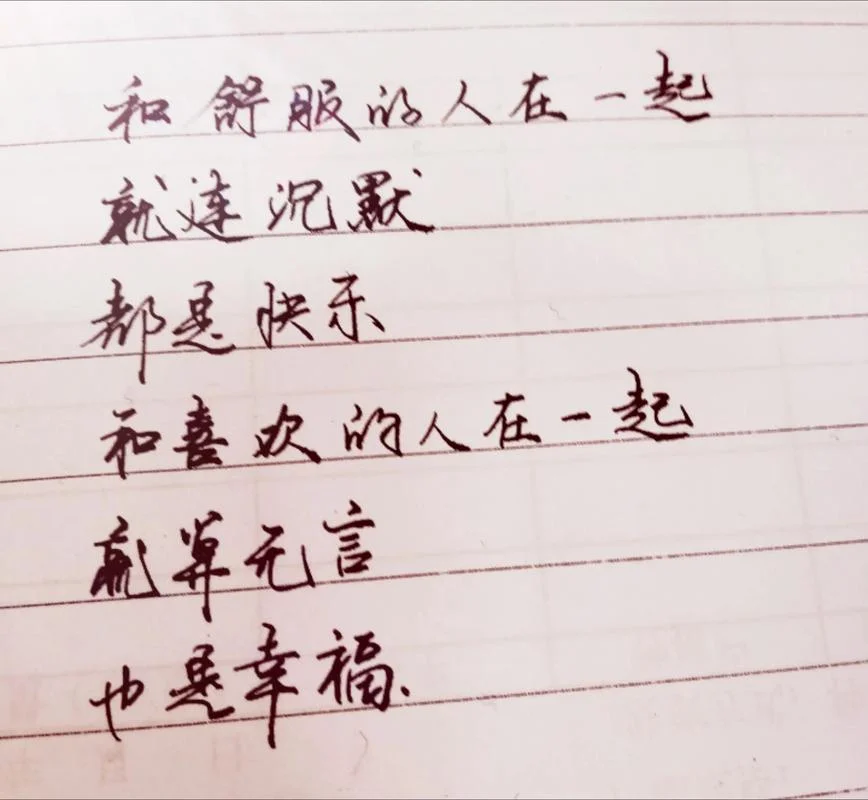 和舒服的人在一起
就连沉默
都是快乐
和喜欢的人在一起
就算无言
也是幸福.